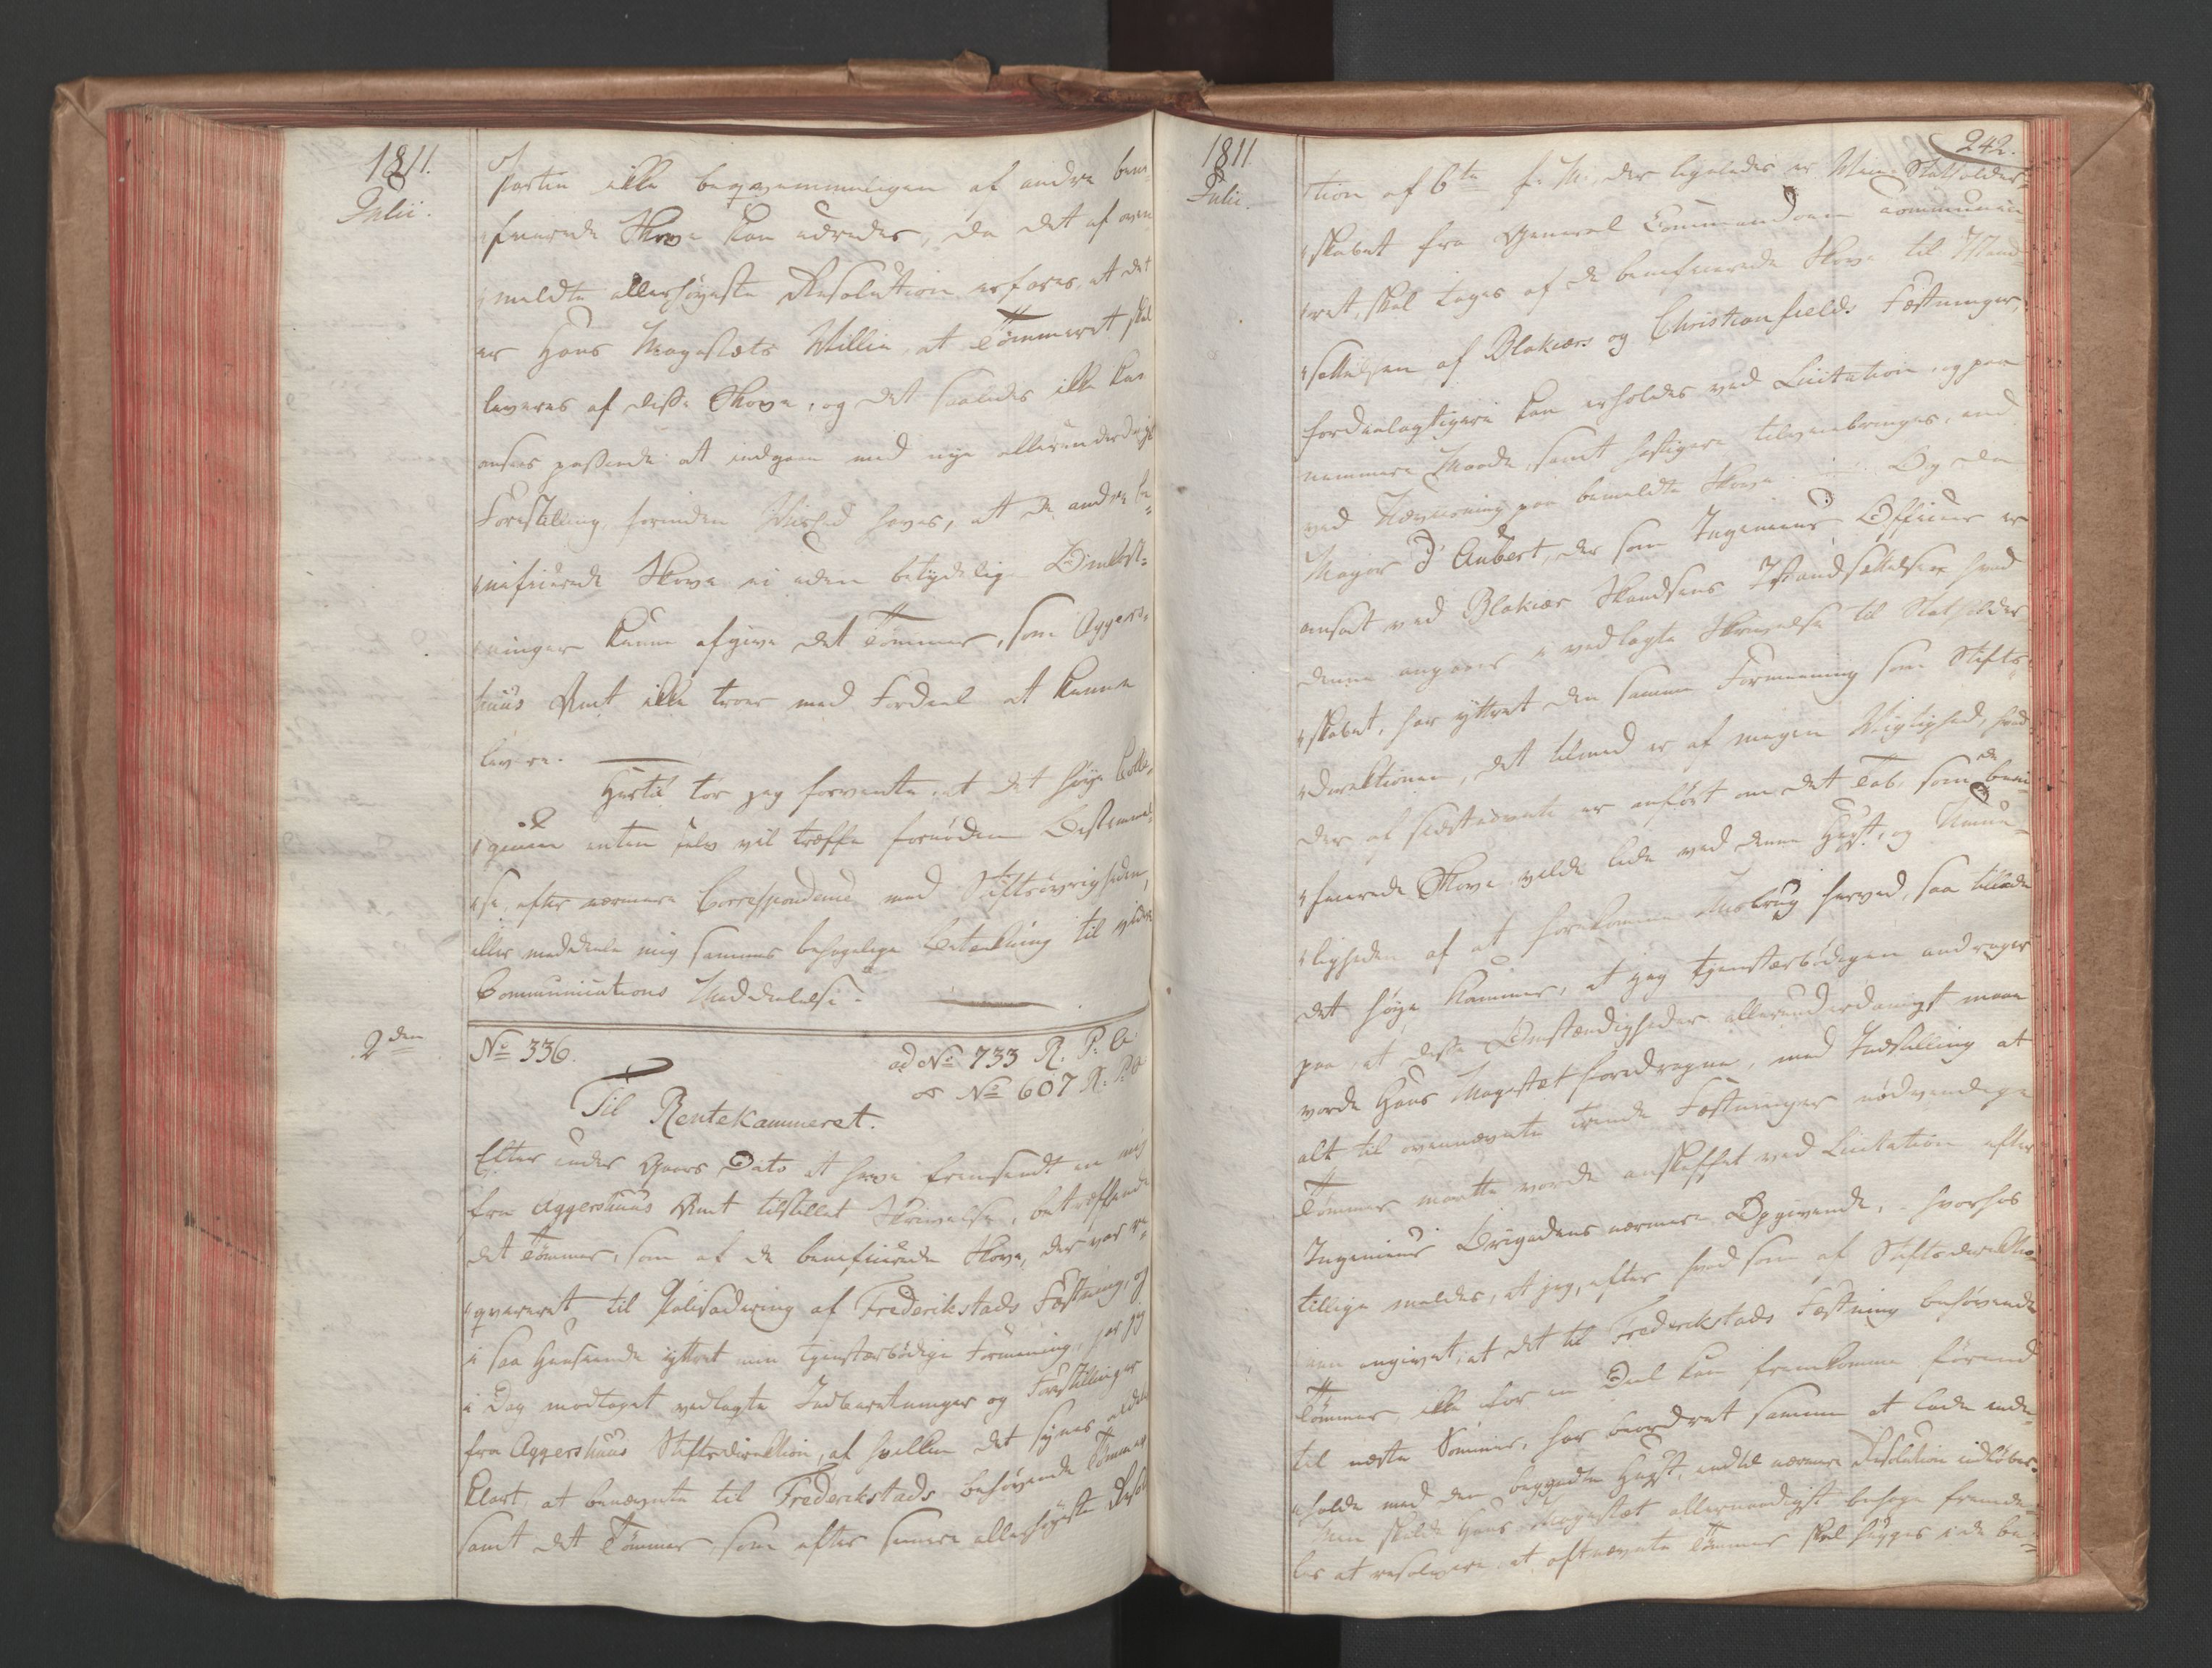 1811.
Julii.
Parten ikke beqvemmeligen af andre bene-
ficerede Skove kan udredes, da det af oven
meldte allerhøyeste Resolution erfares, at det
er Hans Majestæts Villie, at Tømmeret skal
leveres af disse Skove, og det saaledes ikke kan
ansees passende at indgaae med nye allerunderdanigst
Forestilling, forinden Vished haves, at de andre be-
neficerede Skove ei uden betydelig Omkost-
ninger kunne afgive det Tømmer, som Aggers-
huus Amt ikke troer med Fordeel at kunne
levere.
Hertil tør jeg forvente, at det høye Colle-
gium enten selv vil træffe fornøden Bestemmel-
se, efter nærmere Correspondence med Stiftsøvrigheden,
eller meddeele mig sammes behagelige Betænkning til videre
Communications Meddelelse.
2den
No 336.
ad No 733 R. P. A.
& No 607 R. P. A.
Til Rentekammeret.
Efter under Gaars Dato at have fremsendt en mig
fra Aggershuus Amt tilstillet Skrivelse, betræffende
det Tømmer, som af de beneficerede Skove, der var re-
qvireret til Palisadering af Frederikstads Fæstning, og
i saa Henseende yttret min tjenstærbødige Formening, har jeg
i Dag modtaget vedlagte Indberetninger og Forestillinger
fra Aggershuus Stiftsdirektion, af hvilken det synes aldeles
klart, at benævnte til Frederikstads behøvende Tømmer
samt det Tømmer, som efter senere allerhøyeste Resolu-
1811.
Julii.
242.
tion af 6te f. M., der ligeledes er Vice-Statholder-
skabet fra General Commandoen communice-
ret, skal tages af de beneficerede Skove til Istand-
sættelsen af Blakiærs og Christiansfields Fæstninger,
fordeelagtigere kan erholdes ved Licitation, og paa
nemmere Maade, samt hastigere tilveiebringes, end
ved Udviisning paa bemeldte Skove. Og da
Major d'Aubert, der som Ingenieur Officier er
ansat ved Blakiær Skandses Istandsættelse, hvad
denne angaaer i vedlagte Skrivelse til Statholder-
skabet, har yttret den samme Formeening som Stifts-
direktionen, det tilmed er af megen Vigtighed, hvad
der af sidstnævnte er anført om det Tab, som de bene-
ficerede Skove vilde lide ved denne Hugst, og Umue-
ligheden af at forekomme Misbrug herved, saa tillade
det høye Kammer, at jeg tjenstærbødigen andrager
paa, at disse Omstændigheder allerunderdanigst maae
vorde Hans Majestæt foredragne, med Indstilling at
alt til ovennævnte trende Fæstninger nødvendige
Tømmer maatte vorde anskaffet ved Licitation efter
Ingenieur Brigadens nærmere Opgivende, hvorhos
tillige meldes, at jeg, efter hvad som af Stiftsdirektio-
nen angivet, at det til Frederikstads Fæstning behøvende
Tømmer, ikke for en Deel kan fremkomme førend
til næste Sommer, har beordret samme at lade inde-
holde med den begyndte Hugst, indtil nærmere Resolution indløber.
Men skulde Hans Majestæt allernaadigst behage fremde-
les at resolvere, at oftnævnte Tømmer skal hugges i de be-